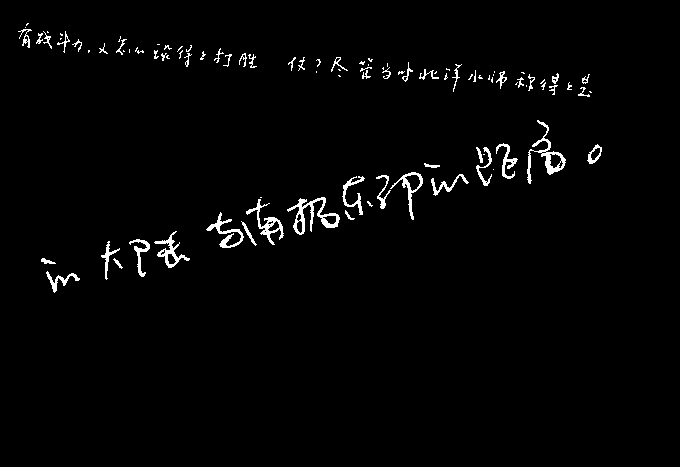 有战斗力,又怎么谈得上打胜 仗?尽管当时北洋水师称得上是
的大陆与南极东部的距离。